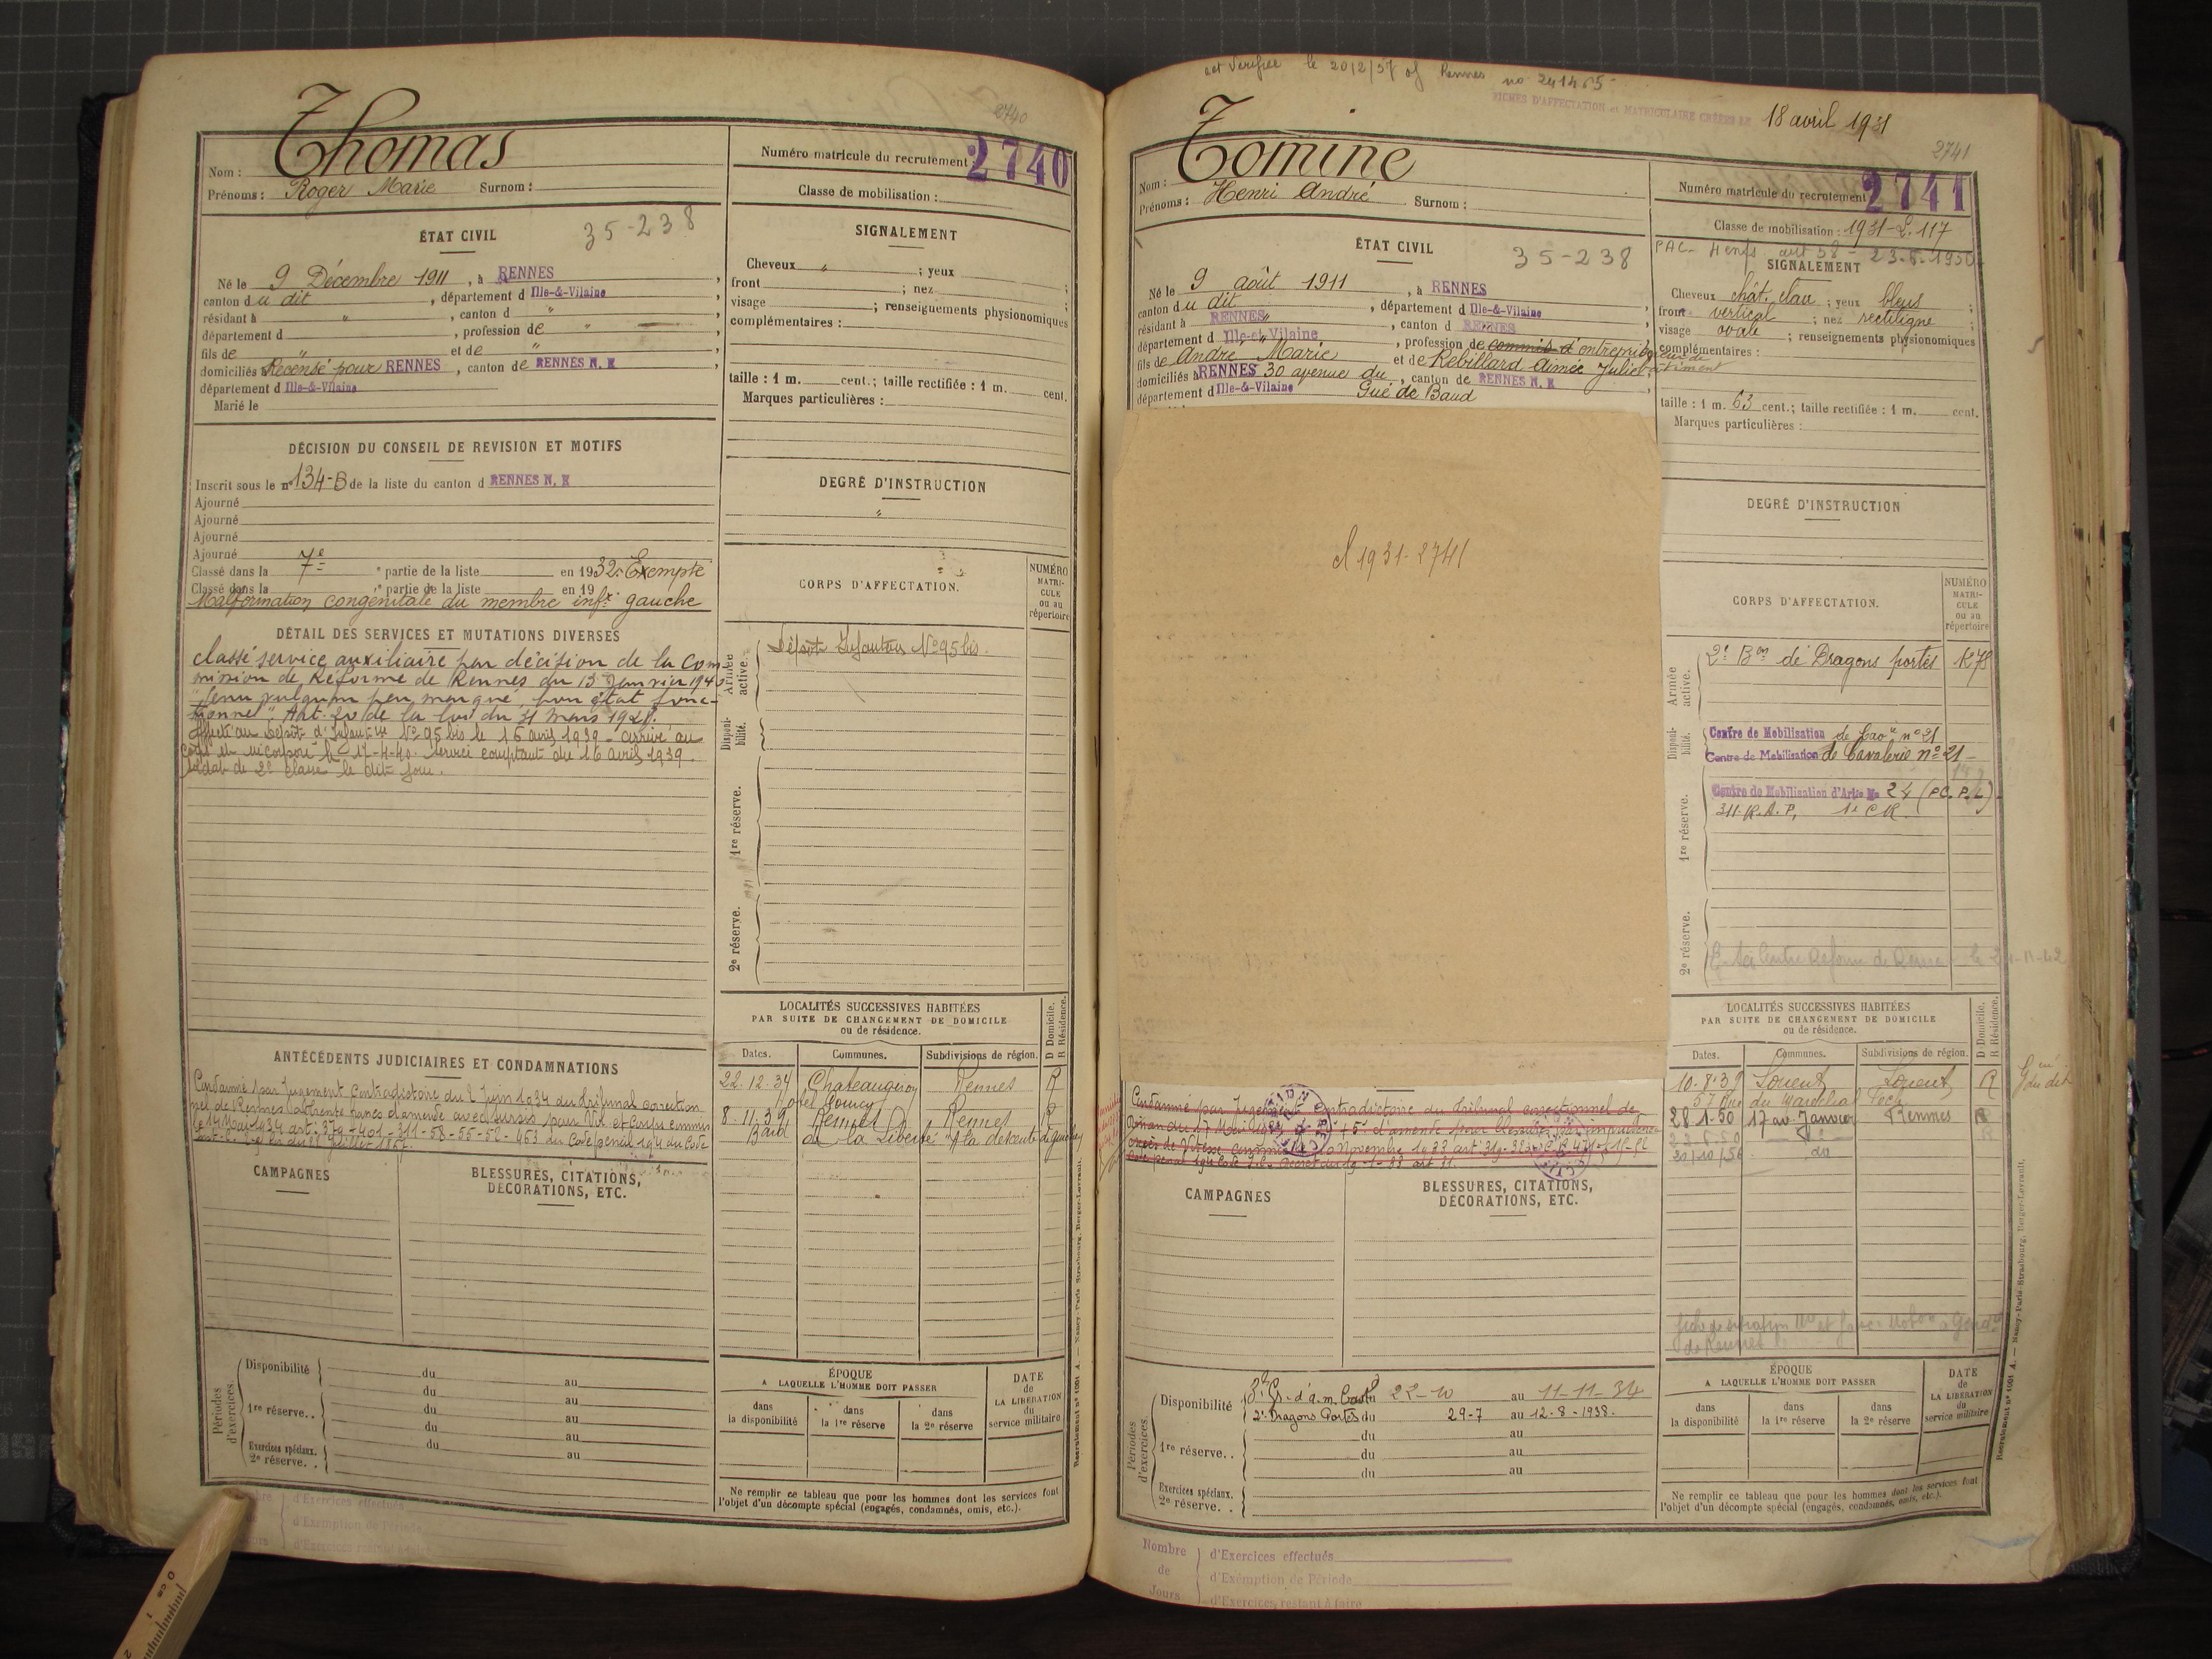 2740
Thomas
Nom :
Prénoms : Roger Marie Surnom :
Numéro matricule du recrutement 2740
Classe de mobilisation :
ÉTAT CIVIL 35-238
Né le 9 Décembre 1911, à RENNES,
canton du dit, département d Ille-&-Vilaine,
résidant à ", canton d ",
département d , profession de " ,
fils de " et de " ,
domiciliés Recensé pour RENNES, canton de RENNES N. E
département d Ille-&-Vilaine
Marié le
DÉCISION DU CONSEIL DE REVISION ET MOTIFS
Inscrit sous le n° 134-B de la liste du canton d RENNES N. E
Ajourné
Ajourné
Ajourné
Ajourné
Classé dans la 7e " partie de la liste en 1932. Exempté
Classé dans la " partie de la liste en 19
Malformation congénitale du membre infr gauche
DÉTAIL DES SERVICES ET MUTATIONS DIVERSES
classé service auxiliaire par décision de la Com-
mission de Réforme de Rennes du 15 Janvier 1940
"Genu valgum peu marqué, bon état fonc-
tionnel". Art. 20 de la loi du 31 mars 1928.
Affecté au Dépôt d'Infanterie N° 95 bis le 16 avril 1939 - arrivé au
corps et incorporé le 17-4-40. service comptant du 16 avril 1939.
soldat de 2e classe le dit jour.
ANTÉCÉDENTS JUDICIAIRES ET CONDAMNATIONS
Condamné par Jugement Contradictoire du 2 Juin 1934 du Tribunal correction
nel de Rennes à trente francs d'amende avec sursis pour Vol et Coups commis
le 14 Mai 1934 art: 379-401-311-58-55-52-463 du Code pénal 194 du Code
CAMPAGNES
BLESSURES, CITATIONS,
DÉCORATIONS, ETC.
Périodes d'exercices.
Disponibilité du au
du au
1re réserve.. du au
du au
Exercices spéciaux. du au
2e réserve. .
d'Exercices effectués
d'Exemption de Période
SIGNALEMENT
Cheveux " ; yeux ;
front ; nez ;
visage ; renseignements physionomiques
complémentaires :
taille : 1 m. cent.; taille rectifiée : 1 m. cent.
Marques particulières :
DEGRÉ D'INSTRUCTION
"
CORPS D'AFFECTATION.
NUMÉRO
MATRI-
CULE
ou au
répertoire
Armée active.
Dépôt Infanterie N° 95 bis
Disponi-
bilité.
1re réserve.
2e réserve.
LOCALITÉS SUCCESSIVES HABITÉES
PAR SUITE DE CHANGEMENT DE DOMICILE
ou de résidence.
D Domicile.
R Résidence.
Dates. Communes. Subdivisions de région.
22-12-34 Chateaugiron Rennes R
8-11-39 Rennes Rennes R
ÉPOQUE
A LAQUELLE L'HOMME DOIT PASSER
dans la disponibilité
dans la 1re réserve
dans la 2e réserve
DATE
de
LA LIBÉRATION
du
service militaire
Ne remplir ce tableau que pour les hommes dont les services font
l'objet d'un décompte spécial (engagés, condamnés, omis, etc.).
Recrutement n° 1001 A. — Nancy-Paris-Strasbourg. Berger-Levrault.
FICHES D'AFFECTATION et MATRICULAIRE CRÉÉES LE 18 avril 1931
2741
Tomine
Nom :
Prénoms : Henri André Surnom :
Numéro matricule du recrutement 2741
Classe de mobilisation : 1931-2.117
ÉTAT CIVIL 35-238
Né le 9 août 1911, à RENNES
canton du dit, département d Ille-&-Vilaine,
résidant à RENNES, canton d RENNES
département d Ille-et-Vilaine, profession de commis d'entreprise
fils de André Marie et de Rebillard Aimée Juliet
domiciliés à RENNES 30 avenue du, canton de RENNES N. E
département d Ille-&-Vilaine Gué de Baud
cl 1931-2741
Condamné par Jugement contradictoire du Tribunal correctionnel de
CAMPAGNES
BLESSURES, CITATIONS,
DÉCORATIONS, ETC.
Périodes d'exercices.
Disponibilité du 22-10 au 11-11-34
2e Dragons Portés du 29-7 au 12-8-1938.
du au
1re réserve.. du au
du au
Exercices spéciaux.
2e réserve. .
Nombre
de
Jours
d'Exercices effectués
d'Exemption de Période
d'Exercices restant à faire
SIGNALEMENT
Cheveux chât. clair ; yeux bleus ;
front vertical ; nez rectiligne ;
visage ovale ; renseignements physionomiques
complémentaires :
taille : 1 m. 63 cent.; taille rectifiée : 1 m. cent.
Marques particulières :
DEGRÉ D'INSTRUCTION
CORPS D'AFFECTATION.
NUMÉRO
MATRI-
CULE
ou au
répertoire
Armée active.
2e Bon de Dragons portés
Disponi-
bilité.
Centre de Mobilisation de Cavie n° 21
Centre de Mobilisation de Cavalerie n° 21
1re réserve.
Centre de Mobilisation d'Artie No 24
2e réserve.
LOCALITÉS SUCCESSIVES HABITÉES
PAR SUITE DE CHANGEMENT DE DOMICILE
ou de résidence.
D Domicile.
R Résidence.
Dates. Communes. Subdivisions de région.
10-8-39 Lorient Lorient R
57 Rue du Maréchal Foch
28-1-50 17 av. Janvier Rennes R
ÉPOQUE
A LAQUELLE L'HOMME DOIT PASSER
dans la disponibilité
dans la 1re réserve
dans la 2e réserve
DATE
de
LA LIBÉRATION
du
service militaire
Ne remplir ce tableau que pour les hommes dont les services font
l'objet d'un décompte spécial (engagés, condamnés, omis, etc.).
Recrutement n° 1001 A. — Nancy-Paris-Strasbourg. Berger-Levrault.